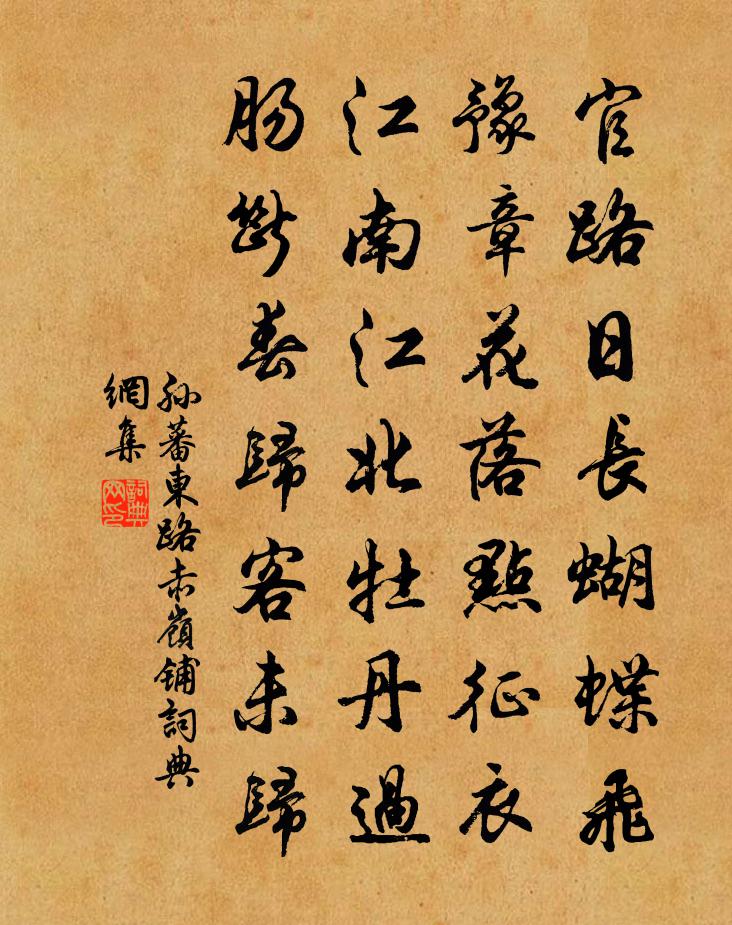 官路日長蝴蝶飛
豫章花落點征衣
江南江北牡丹過
腸斷春歸客未歸
孫蕃東路赤嶺鋪詞典
網集
詞典
网印